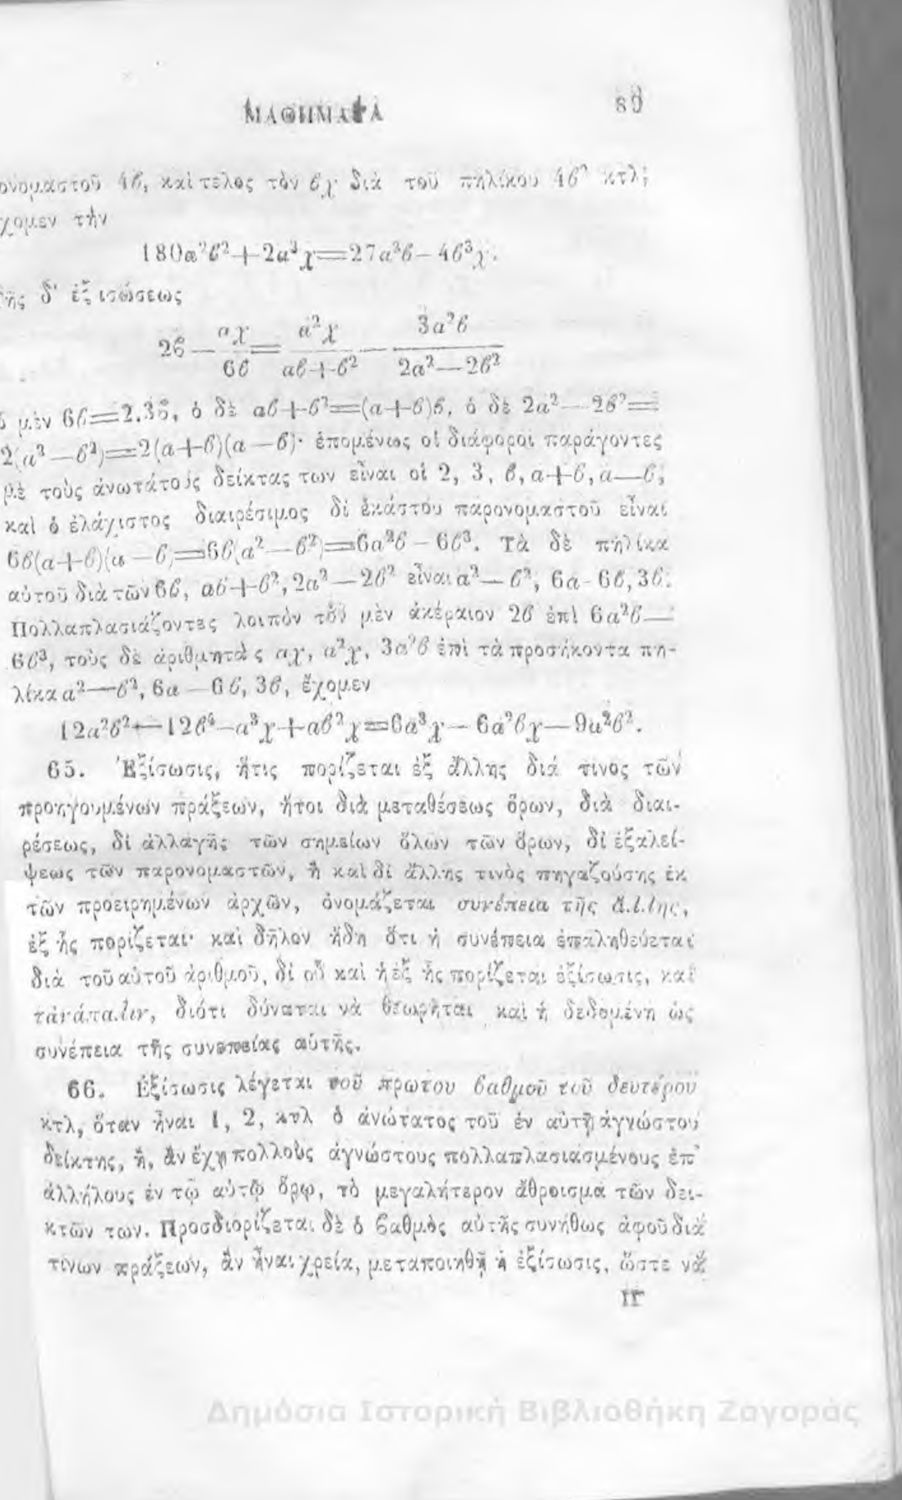 ΜΑΘΗΜΑΤΑ 89
ονομαστοῦ 4ϐ, καὶ τέλος τὸν ϐχ διὰ τοῦ πηλίκου 4ϐ² κτλ;
χομεν τὴν
180α²ϐ²+2α³χ=27α³ϐ-4ϐ³χ.
τῆς δ' ἐξισώσεως
2ϐ — αχ/6ϐ = α²χ/αϐ+ϐ² — 3α²ϐ/2α²—2ϐ²
ὁ μὲν 6ϐ=2.3ϐ, ὁ δὲ αϐ+ϐ²=(α+ϐ)ϐ, ὁ δὲ 2α²—2ϐ²=
2(α²—ϐ²)=2(α+ϐ)(α—ϐ)· ἑπομένως οἱ διάφοροι παράγοντες
μὲ τοὺς ἀνωτάτους δείκτας των εἶναι οἱ 2, 3, ϐ, α+ϐ, α—ϐ,
καὶ ὁ ἐλάχιστος διαιρέσιμος δι' ἑκάστου παρονομαστοῦ εἶναι
6ϐ(α+ϐ)(α—ϐ)=6ϐ(α²—ϐ²)=6α²ϐ-6ϐ³. Τὰ δὲ πηλίκα
αὐτοῦ διὰ τῶν 6ϐ, αϐ+ϐ², 2α²—2ϐ² εἶναι α²—ϐ², 6α-6ϐ, 3ϐ.
Πολλαπλασιάζοντες λοιπὸν τὸν μὲν ἀκέραιον 2ϐ ἐπὶ 6α²ϐ—
6ϐ³, τοὺς δὲ ἀριθμητὰς αχ, α²χ, 3α²ϐ ἐπὶ τὰ προσήκοντα πη-
λίκα α²—ϐ², 6α—6ϐ, 3ϐ, ἔχομεν
12α²ϐ²—12ϐ⁴-α³χ+αϐ²χ=6α³χ-6α²ϐχ—9α²ϐ².
65. Ἐξίσωσις, ἥτις πορίζεται ἐξ ἄλλης διά τινος τῶν
προηγουμένων πράξεων, ἤτοι διὰ μεταθέσεως ὅρων, διὰ διαι-
ρέσεως, δι' ἀλλαγῆς τῶν σημείων ὅλων τῶν ὅρων, δι' ἐξαλεί-
ψεως τῶν παρονομαστῶν, ἢ καὶ δι' ἄλλης τινὸς πηγαζούσης ἐκ
τῶν προειρημένων ἀρχῶν, ὀνομάζεται συνέπεια τῆς ἄλλης,
ἐξ ἧς πορίζεται· καὶ δῆλον ἤδη ὅτι ἡ συνέπεια ἐπαληθεύεται
διὰ τοῦ αὐτοῦ ἀριθμοῦ, δι' οὗ καὶ ἡ ἐξ ἧς πορίζεται ἐξίσωσις, καὶ
τἀνάπαλιν, διότι δύναται νὰ θεωρῆται καὶ ἡ δεδομένη ὡς
συνέπεια τῆς συνεπείας αὐτῆς.
66. Ἐξίσωσις λέγεται τοῦ πρώτου ϐαθμοῦ τοῦ δευτέρου
κτλ, ὅταν ἦναι 1, 2, κτλ ὁ ἀνώτατος τοῦ ἐν αὐτῇ ἀγνώστου
δείκτης, ἤ, ἂν ἔχῃ πολλοὺς ἀγνώστους πολλαπλασιασμένους ἐπ'
ἀλλήλους ἐν τῷ αὐτῷ ὅρῳ, τὸ μεγαλήτερον ἄθροισμα τῶν δει-
κτῶν των. Προσδιορίζεται δὲ ὁ ϐαθμὸς αὐτῆς συνήθως ἀφοῦ διά
τινων πράξεων, ἂν ἦναι χρεία, μεταποιηθῇ ἡ ἐξίσωσις, ὥστε νὰ
Δημόσια Ιστορική Βιβλιοθήκη Ζαγοράς